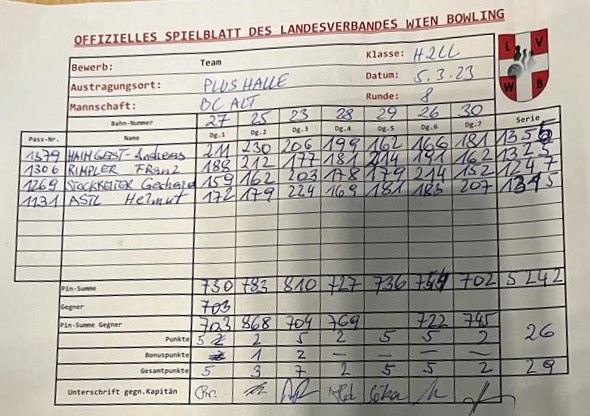 OFFIZIELLES SPIELBLATT DES LANDESVERBANDES WIEN BOWLING
Bewerb: Team Klasse: H2LL
Austragungsort: PLUS HALLE Datum: 5.3.23
Mannschaft: BC ALT Runde: 8
L V W B
Bahn-Nummer 27 25 23 28 29 26 30 Serie
Pass-Nr. Name Dg.1 Dg.2 Dg.3 Dg.4 Dg.5 Dg.6 Dg.7
1379 HAIMGEIST Andreas 211 230 206 199 162 166 181 1355
1306 RIMPLER Franz 188 212 177 181 214 191 162 1325
1269 STOCKREITER Gerhard 159 162 203 178 179 214 152 1247
1131 ASTL Helmut 172 179 224 169 181 183 207 1315
Pin-Summe 730 783 810 727 736 754 702 5242
Gegner 703
Pin-Summe Gegner 703 868 704 769 722 745
Punkte 5 2 5 2 5 5 2 26
Bonuspunkte 1 2 — — — —
Gesamtpunkte 5 3 7 2 5 5 2 29
Unterschrift gegn.Kapitän